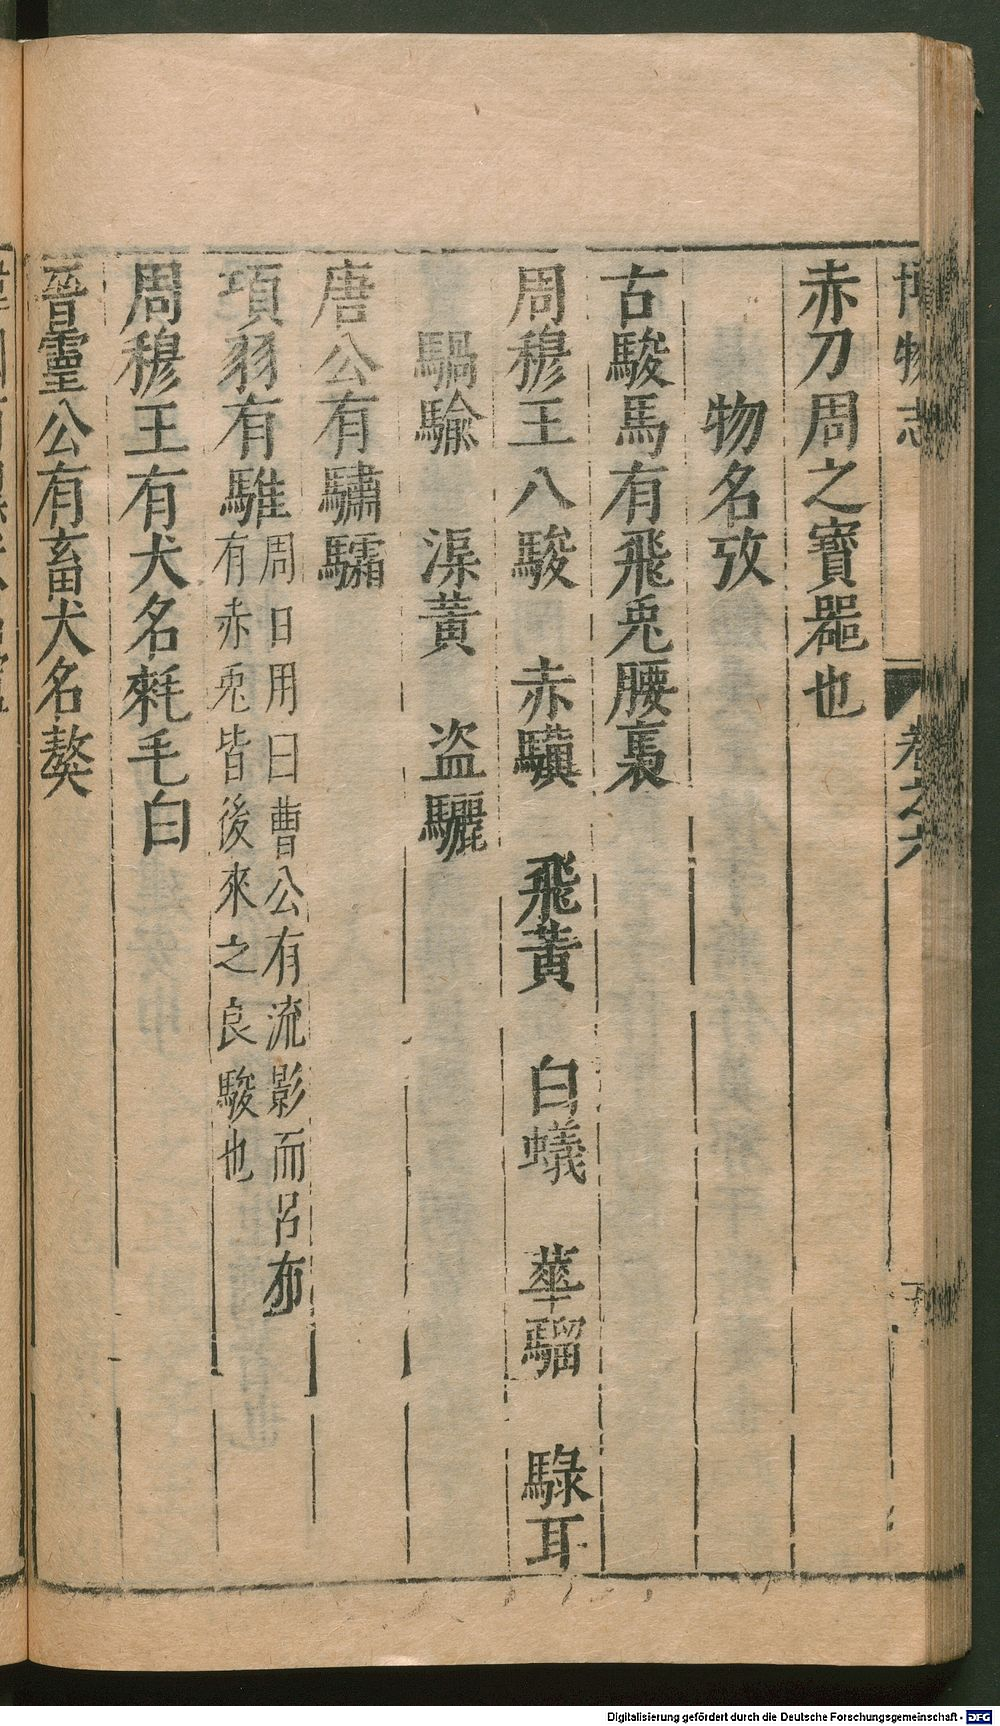 博物志 卷之六
赤刀周之寶器也
物名攷
古駿馬有飛兎腰褭
周穆王八駿 赤驥 飛黃 白蟻 華騮 騄耳
騧騟 渠黃 盜驪
唐公有驌驦
項羽有騅周日用曰曹公有流影而呂布
有赤兎皆後來之良駿也
周穆王有犬名耗毛白
晉靈公有畜犬名獒
Digitalisierung gefördert durch die Deutsche Forschungsgemeinschaft - DFG